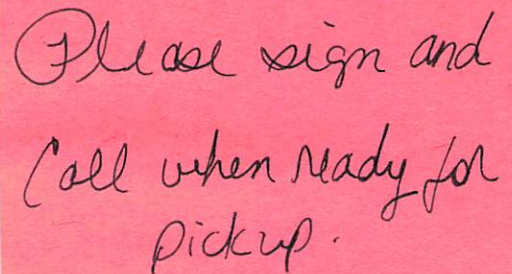 Please sign and
Call when ready for
pickup.